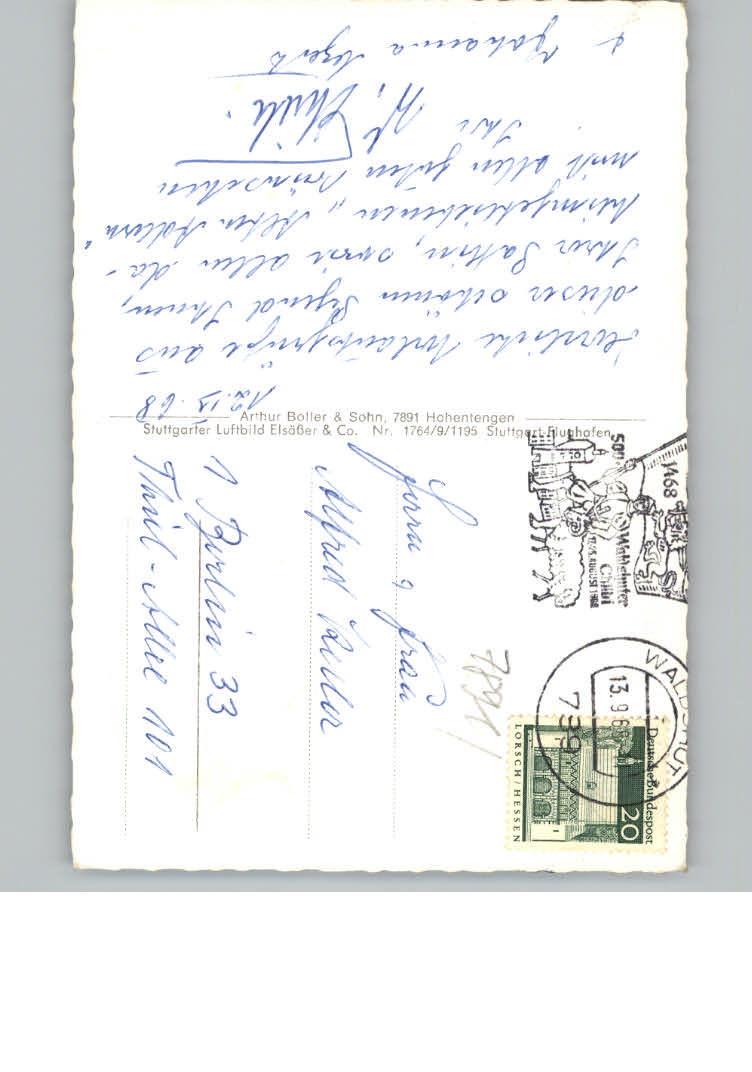 12.IX.68
Herzliche Urlaubsgrüße aus
dieser schönen Gegend Ihnen,
Ihrer Gattin, sowie allen da-
heimgebliebenen „Alten Adlern"
mit allen guten Wünschen
Ihre
+ Johanna
Arthur Boller & Sohn, 7891 Hohentengen
Stuttgarter Luftbild Elsäßer & Co. Nr. 1764/9/1195 Stuttgart-Flughafen
500
1468
Waldshuter
Chilbi
AUGUST 1968
WALDSHUT
13.9.68
739
Deutsche Bundespost
20
LORSCH/HESSEN
7891
Herrn & Frau
Alfred Keller
1 Berlin 33
Thiel-Allee 101